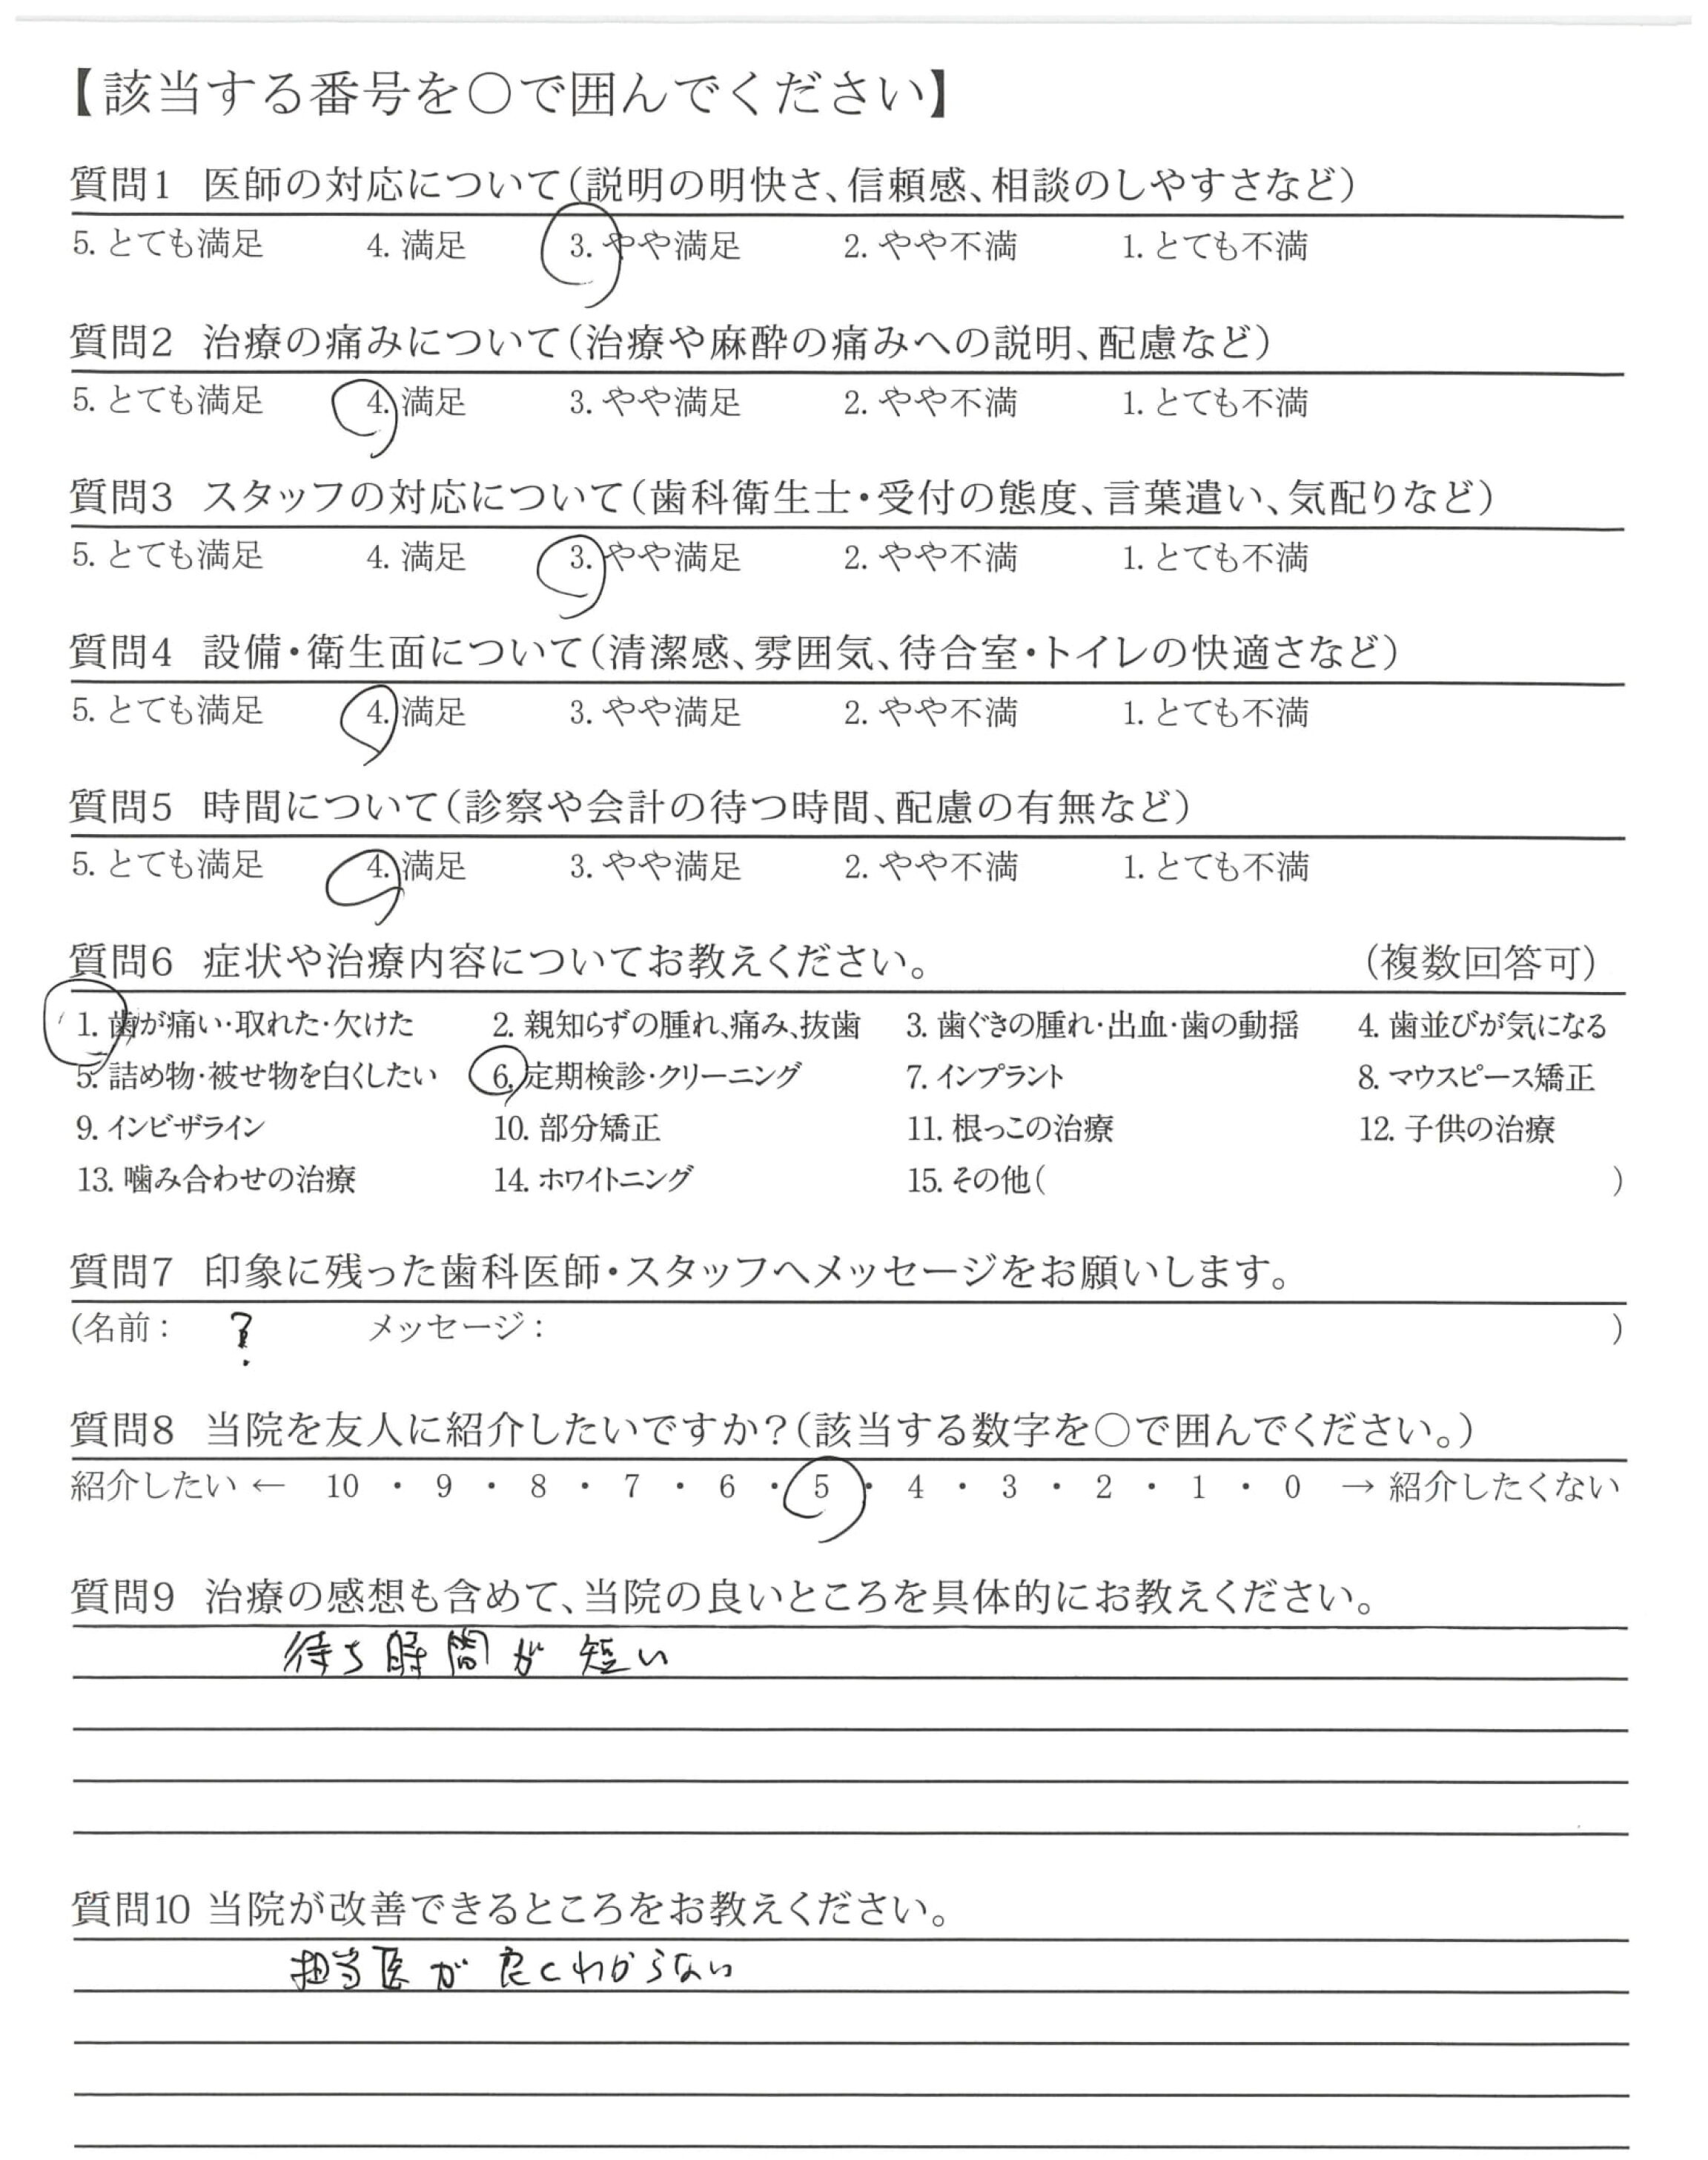 【該当する番号を○で囲んでください】
質問1 医師の対応について(説明の明快さ、信頼感、相談のしやすさなど)
5. とても満足 4. 満足 3. やや満足 2. やや不満 1. とても不満
質問2 治療の痛みについて(治療や麻酔の痛みへの説明、配慮など)
5. とても満足 4. 満足 3. やや満足 2. やや不満 1. とても不満
質問3 スタッフの対応について(歯科衛生士・受付の態度、言葉遣い、気配りなど)
5. とても満足 4. 満足 3. やや満足 2. やや不満 1. とても不満
質問4 設備・衛生面について(清潔感、雰囲気、待合室・トイレの快適さなど)
5. とても満足 4. 満足 3. やや満足 2. やや不満 1. とても不満
質問5 時間について(診察や会計の待つ時間、配慮の有無など)
5. とても満足 4. 満足 3. やや満足 2. やや不満 1. とても不満
質問6 症状や治療内容についてお教えください。 (複数回答可)
1. 歯が痛い・取れた・欠けた 2. 親知らずの腫れ、痛み、抜歯 3. 歯ぐきの腫れ・出血・歯の動揺 4. 歯並びが気になる
5. 詰め物・被せ物を白くしたい 6. 定期検診・クリーニング 7. インプラント 8. マウスピース矯正
9. インビザライン 10. 部分矯正 11. 根っこの治療 12. 子供の治療
13. 噛み合わせの治療 14. ホワイトニング 15. その他( )
質問7 印象に残った歯科医師・スタッフへメッセージをお願いします。
(名前: ? メッセージ: )
質問8 当院を友人に紹介したいですか?(該当する数字を○で囲んでください。)
紹介したい ← 10 ・ 9 ・ 8 ・ 7 ・ 6 ・ 5 ・ 4 ・ 3 ・ 2 ・ 1 ・ 0 → 紹介したくない
質問9 治療の感想も含めて、当院の良いところを具体的にお教えください。
待ち時間が短い
質問10 当院が改善できるところをお教えください。
担当医が良くわからない